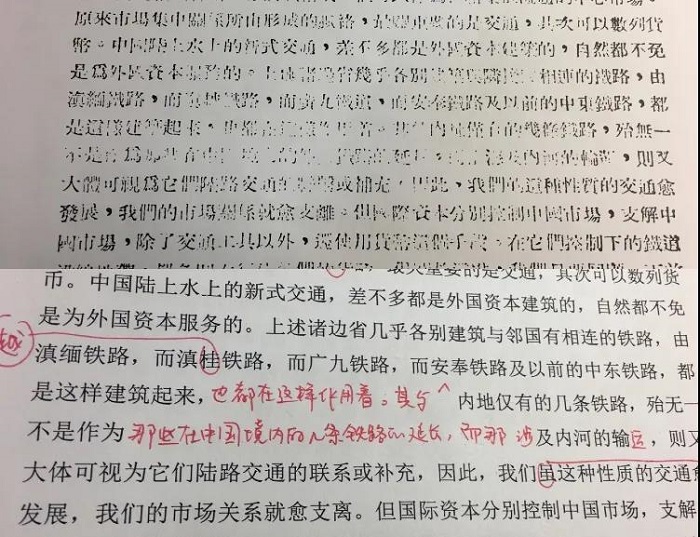 原來市場集中關係所由形成的脈絡，最重要的是交通，其次可以數列貨
幣。中國陸上水上的新式交通，差不多都是外國資本建築的，自然都不免
是爲外國資本服務的。上述諸邊省幾乎各別建築與鄰國有相連的鐵路，由
滇緬鐵路，而滇越鐵路，而廣九鐵道，而安奉鐵路及以前的中東鐵路，都
是這樣建築起來，也都在這樣作用着。其內地僅有的幾條鐵路，殆無一
不是作爲那些在中國境內的延長，及內河的輪，則又
大體可視爲它們陸路交通的聯繫或補充，因此，我們的這種性質的交通愈
發展，我們的市場關係就愈支離。但國際資本分別控制中國市場，支解中
國市場，除了交通工具以外，還使用貨幣這個手段。在它們控制下的鐵道
最重要的是交通，其次可以数列货
币。中国陆上水上的新式交通，差不多都是外国资本建筑的，自然都不免
是为外国资本服务的。上述诸边省几乎各别建筑与邻国有相连的铁路，由
越
滇缅铁路，而滇桂铁路，而广九铁路，而安奉铁路及以前的中东铁路，都
是这样建筑起来，也都在这样作用着。其与内地仅有的几条铁路，殆无一
不是作为那些在中国境内的八条铁路的延长，而那涉及内河的输运，则又
大体可视为它们陆路交通的联系或补充，因此，我们虽这种性质的交通愈
发展，我们的市场关系就愈支离。但国际资本分别控制中国市场，支解